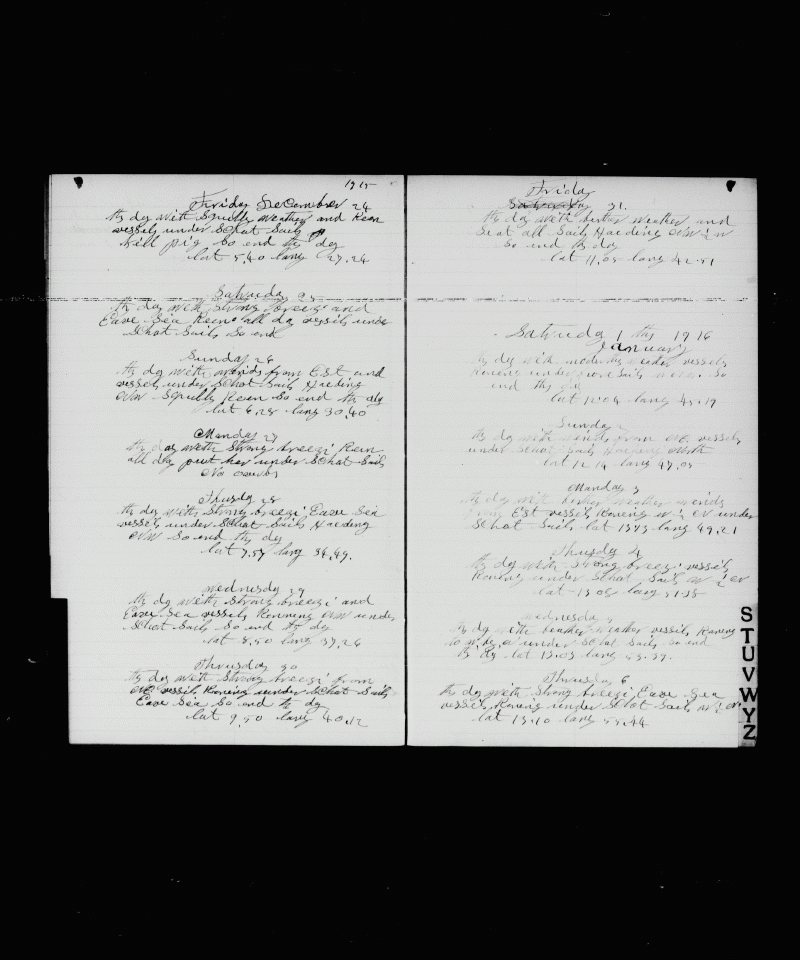 1915
Friday December 24
th dy with Squlls Weather and Reen
vessels under Schot Sails
kill pig So end th dy
lat 5,40 lang 27,24
Saturday 25
th day with Strong breezi and
Eave Sea Reen all da vessils unde
Schot Sails So end
Sunday 26
th dy with winds from ESt and
vessels under Schot Sails Haeding
NW Squlls Reen So end th dy
lat 6,28 lang 30,40
Monday 27
th day with Strong breezi Reen
all day put her under Schot Sails
No
Thusday 28
th dy with Strong breezi Eave Sea
vessils under Schot Sails Haeding
NW So end th dy
lat 7,57 lang 34,49.
Wednusday 29
th dy with Strong breezi and
Eave Sea vessils Ronning NW under
Schot Sails So end th dy
lat 8,50 lang 37,26
Thrusday 30
th dy with Strong breezi from
NE vessils Roning under Schot Sails
Eave Sea So end th dy
lat 9,50 lang 40,12
Friday
31.
th day with better weather and
Seat all Sails Haeding NW
So end th day
lat 11,05 lang 42,51
Satrudy 1 th 1916
January
th dy with weader vessels
Roning under Sails So
end th dy
lat 12,04 lang 45,19
Sunday 2
th dy with winds from NE vessels
under Schot Sails
lat 12,14 lang 47,05
Monday 3
th dy with better weather winds
from ESt vessels Roning W W under
Schot Sails lat 1343 lang 49,21
Thusday 4
th dy with Strong breezi vessils
Roning under Schot Sails W
lat 13,05 lang 51,35
Wednusday 5
th dy with beather weather vessils Roning
under Schot Sails So end
th dy lat 13,03 lang 53,37
Thrusday 6
th dy with Strong breezi Eave Sea
vessils Roning under Schot Sails W
lat 13,10 lang 55,44
S
T
U
V
W
Y
Z